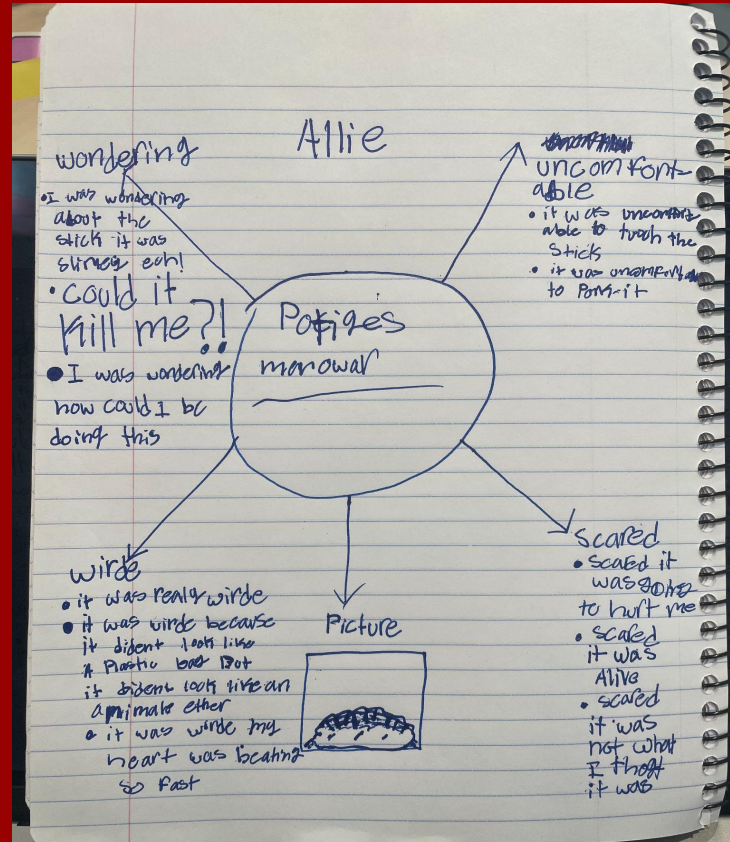 Allie
wondering
• I was wondering
about the
stick it was
slimey
• could it
kill me?!
• I was wondering
how could I be
doing this
uncomfort-
able
• it was uncomfort
able to tuoch the
stick
• it was uncomfortab
to
Portiges
manowar
wirde
• it was realy wirde
• it was wirde because
it dident look like
A Plastic bag But
it dident look like an
animale ether
• it was wirde my
heart was beating
so fast
Picture
scared
• scared it
was going
to hurt me
• scared
it was
Alive
• scared
it was
not what
I thogt
it was